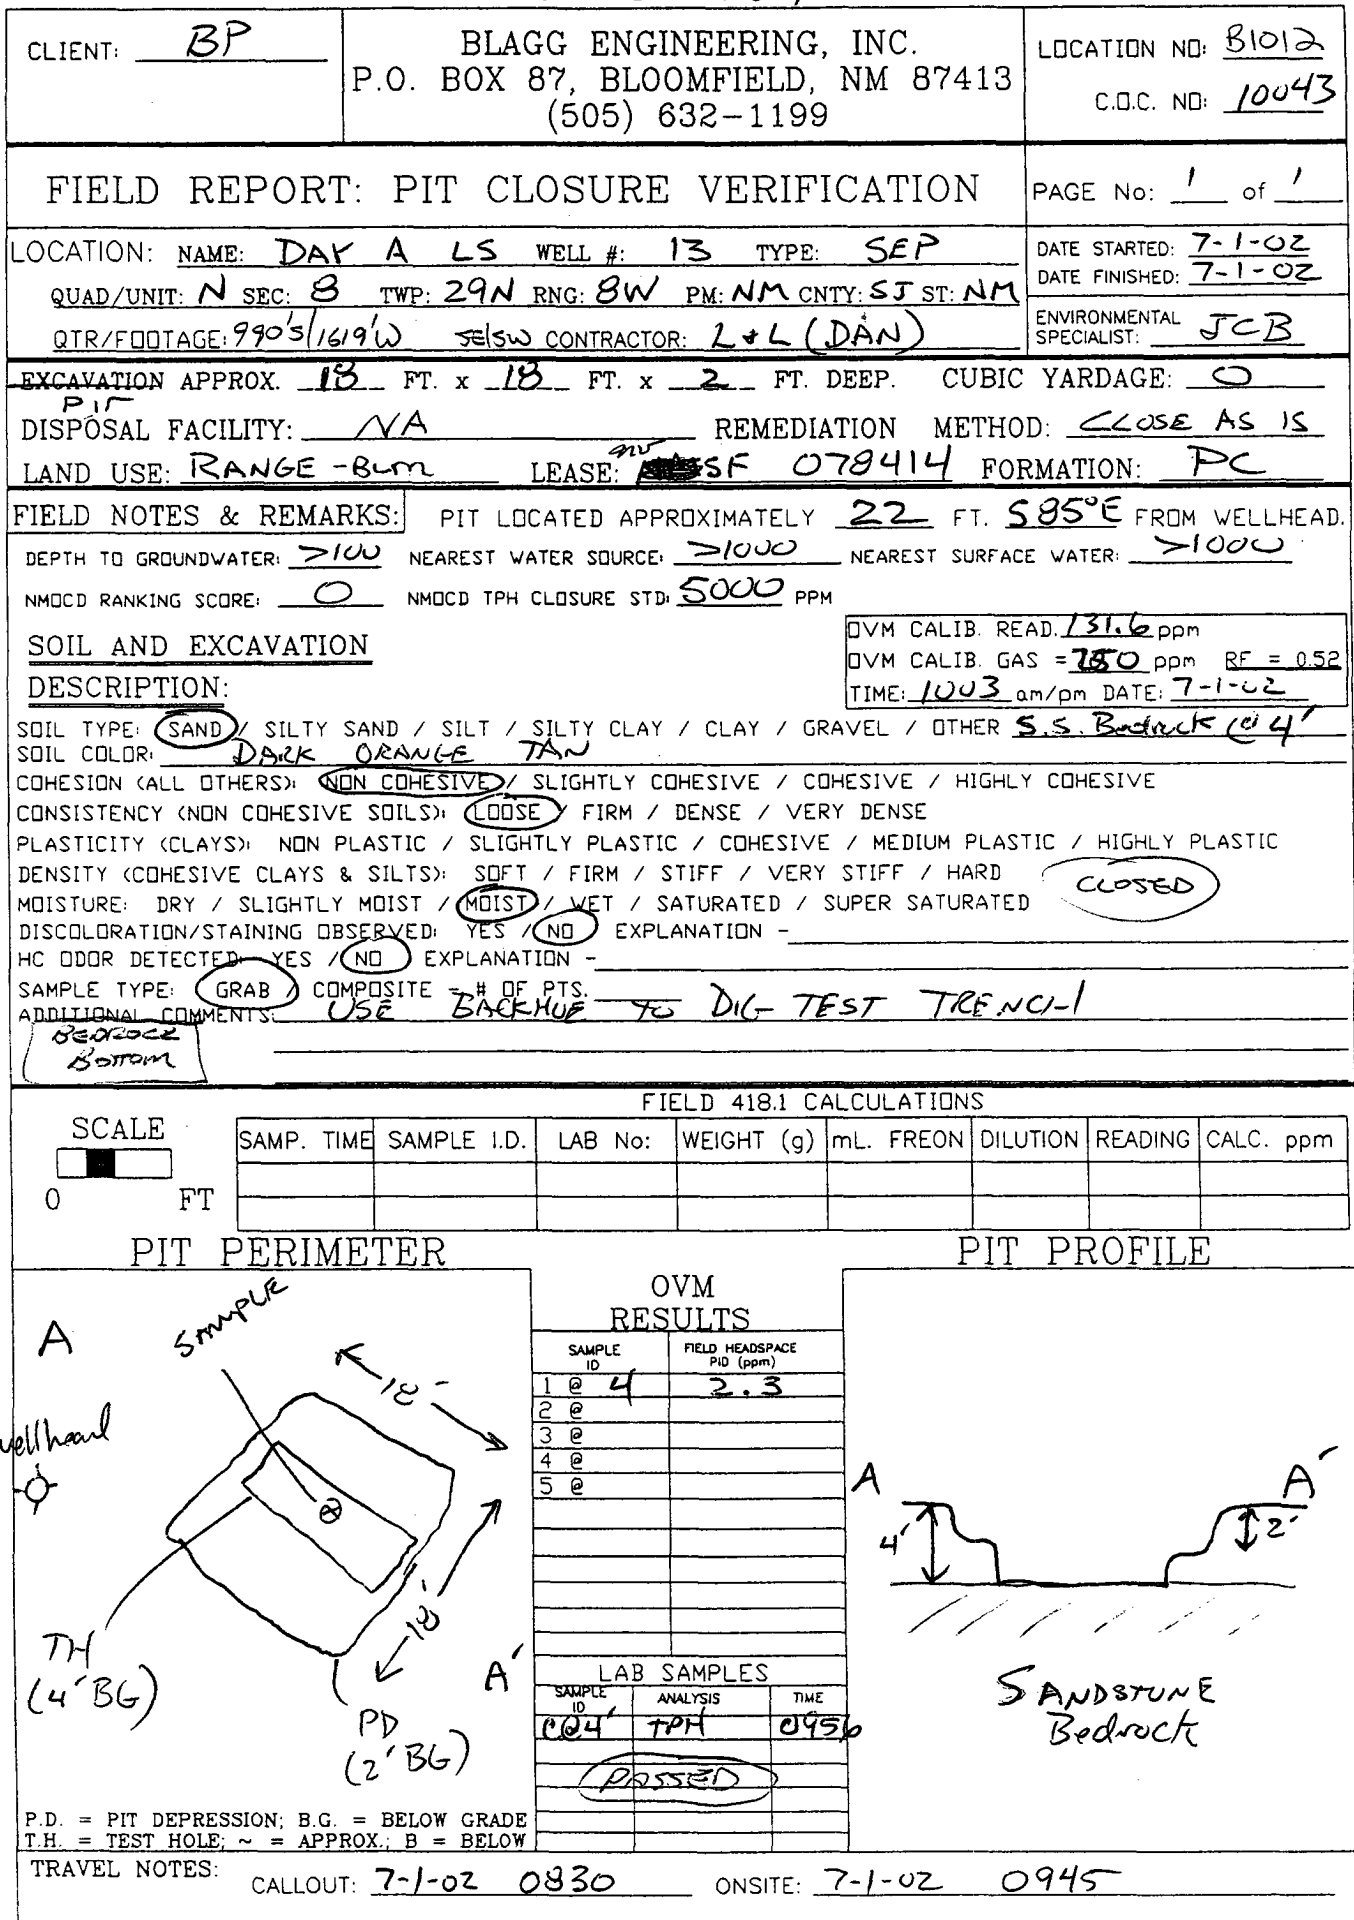 CLIENT: BP
BLAGG ENGINEERING, INC.
P.O. BOX 87, BLOOMFIELD, NM 87413
(505) 632-1199
LOCATION NO: B1012
C.O.C. NO: 10043
FIELD REPORT: PIT CLOSURE VERIFICATION
PAGE No: 1 of 1
LOCATION: NAME: DAY A LS WELL #: 13 TYPE: SEP
QUAD/UNIT: N SEC: 8 TWP: 29N RNG: 8W PM: NM CNTY: SJ ST: NM
QTR/FOOTAGE: 990'S/1619'W SE/SW CONTRACTOR: L+L (DAN)
DATE STARTED: 7-1-02
DATE FINISHED: 7-1-02
ENVIRONMENTAL
SPECIALIST: JCB
EXCAVATION APPROX. 18 FT. x 18 FT. x 2 FT. DEEP. CUBIC YARDAGE: 0
PIT
DISPOSAL FACILITY: NA REMEDIATION METHOD: CLOSE AS IS
LAND USE: RANGE - BLM LEASE: SF 078414 FORMATION: PC
FIELD NOTES & REMARKS: PIT LOCATED APPROXIMATELY 22 FT. S85°E FROM WELLHEAD.
DEPTH TO GROUNDWATER: >100 NEAREST WATER SOURCE: >1000 NEAREST SURFACE WATER: >1000
NMOCD RANKING SCORE: 0 NMOCD TPH CLOSURE STD: 5000 PPM
OVM CALIB. READ. 131.6 ppm
OVM CALIB. GAS = 250 ppm RF = 0.52
TIME: 1003 am/pm DATE: 7-1-02
SOIL AND EXCAVATION
DESCRIPTION:
SOIL TYPE: SAND / SILTY SAND / SILT / SILTY CLAY / CLAY / GRAVEL / OTHER S.S. Bedrock @ 4'
SOIL COLOR: DARK ORANGE TAN
COHESION (ALL OTHERS): NON COHESIVE / SLIGHTLY COHESIVE / COHESIVE / HIGHLY COHESIVE
CONSISTENCY (NON COHESIVE SOILS): LOOSE / FIRM / DENSE / VERY DENSE
PLASTICITY (CLAYS): NON PLASTIC / SLIGHTLY PLASTIC / COHESIVE / MEDIUM PLASTIC / HIGHLY PLASTIC
DENSITY (COHESIVE CLAYS & SILTS): SOFT / FIRM / STIFF / VERY STIFF / HARD
CLOSED
MOISTURE: DRY / SLIGHTLY MOIST / MOIST / WET / SATURATED / SUPER SATURATED
DISCOLORATION/STAINING OBSERVED: YES / NO EXPLANATION -
HC ODOR DETECTED: YES / NO EXPLANATION -
SAMPLE TYPE: GRAB / COMPOSITE - # OF PTS.
ADDITIONAL COMMENTS: USE BACKHOE TO DIG TEST TRENCH
BEDROCK
BOTTOM
FIELD 418.1 CALCULATIONS
SCALE
0 FT
SAMP. TIME SAMPLE I.D. LAB No: WEIGHT (g) mL. FREON DILUTION READING CALC. ppm
PIT PERIMETER
PIT PROFILE
A
SAMPLE
18'
wellhead
18'
TH
(4' BG)
A'
PD
(2' BG)
P.D. = PIT DEPRESSION; B.G. = BELOW GRADE
T.H. = TEST HOLE; ~ = APPROX.; B = BELOW
OVM
RESULTS
SAMPLE ID FIELD HEADSPACE PID (ppm)
1 @ 4 2.3
2 @
3 @
4 @
5 @
LAB SAMPLES
SAMPLE ID ANALYSIS TIME
C@4' TPH 0956
PASSED
A A'
4' 2'
SANDSTONE
Bedrock
TRAVEL NOTES: CALLOUT: 7-1-02 0830 ONSITE: 7-1-02 0945